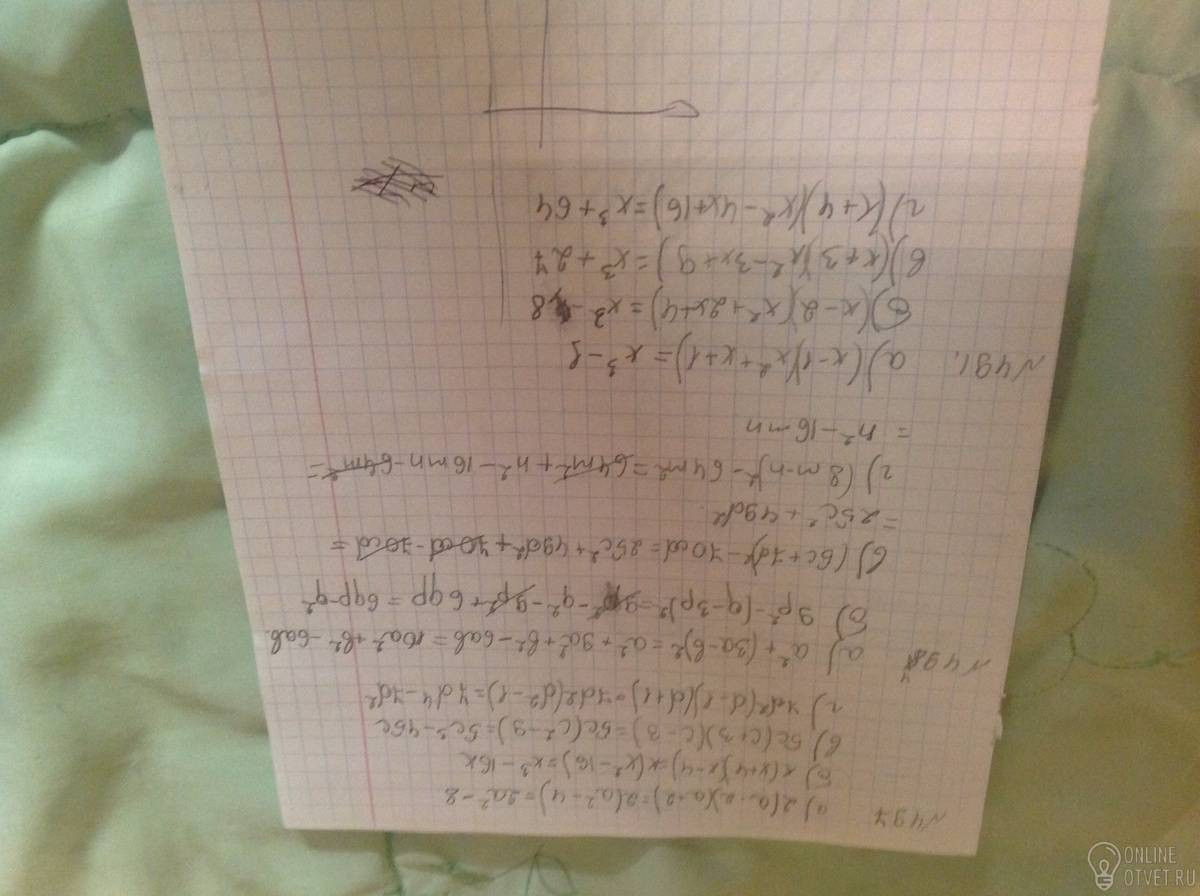 №497
а) 2(a-2)(a+2)=2(a²-4)=2a²-8
б) x(x+4)(x-4)=x(x²-16)=x³-16x
в) 5c(c+3)(c-3)=5c(c²-9)=5c³-45c
г) 7d²(d-1)(d+1)=7d²(d²-1)=7d4-7d²
№498
а) a²+(3a-b)²=a²+9a²+b²-6ab=10a²+b²-6ab
б) 9p²-(q-3p)²=9p²-q²-9p²+6qp=6qp-q²
в) (5c+7d)²-70cd=25c²+49d²+70cd-70cd=
=25c²+49d²
г) (8m-n)²-64m²=64m²+n²-16mn-64m²=
=n²-16mn
№491.
а) (x-1)(x²+x+1)=x³-1
б) (x-2)(x²+2x+4)=x³-8
в) (x+3)(x²-3x+9)=x³+27
г) (x+4)(x²-4x+16)=x³+64
ONLINE
OTVET.RU